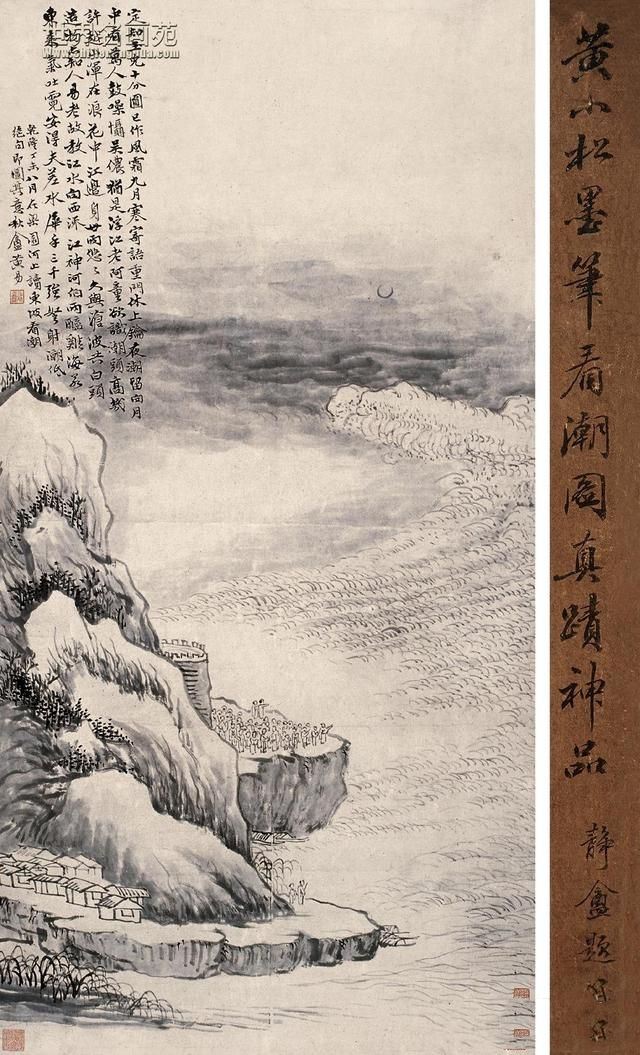 黃小松墨筆看潮圖真蹟神品
靜盦題
定知玉兔十分圓已作風霜九月寒寄語重門休上鑰夜潮留向月
中看萬人鼓噪懾吳儂猶是浮江老阿童欲識潮頭高幾
許越山渾在浪花中江邊身世兩悠々久與滄波共白頭
造物亦知人易老故教江水向西流江神河伯兩醯雞海若
東來氣吐霓安得夫差水犀手三千強弩射潮低
乾隆丁未八月在梁園河上讀東坡看潮
絕句即圖其意秋盦黃易